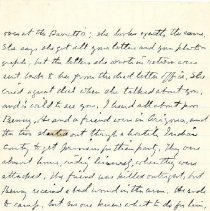 over at the          she looks exactly the same.
She says she got all your letters and your photo-
graph, but the letters she wrote in return were
sent back to her from the dead letter office. She
cried              when she talked about you,
and is wild to see you. I heard all about poor
Benny, He and a friend were in Arizona, and
the two started out through a hostile Indian
country to get          for their party. They were
almost home, riding          when they were
attacked. His friend was killed outright, but
Benny received a bad wound in the arm. He rode
to camp, but no one knew what to do for him,